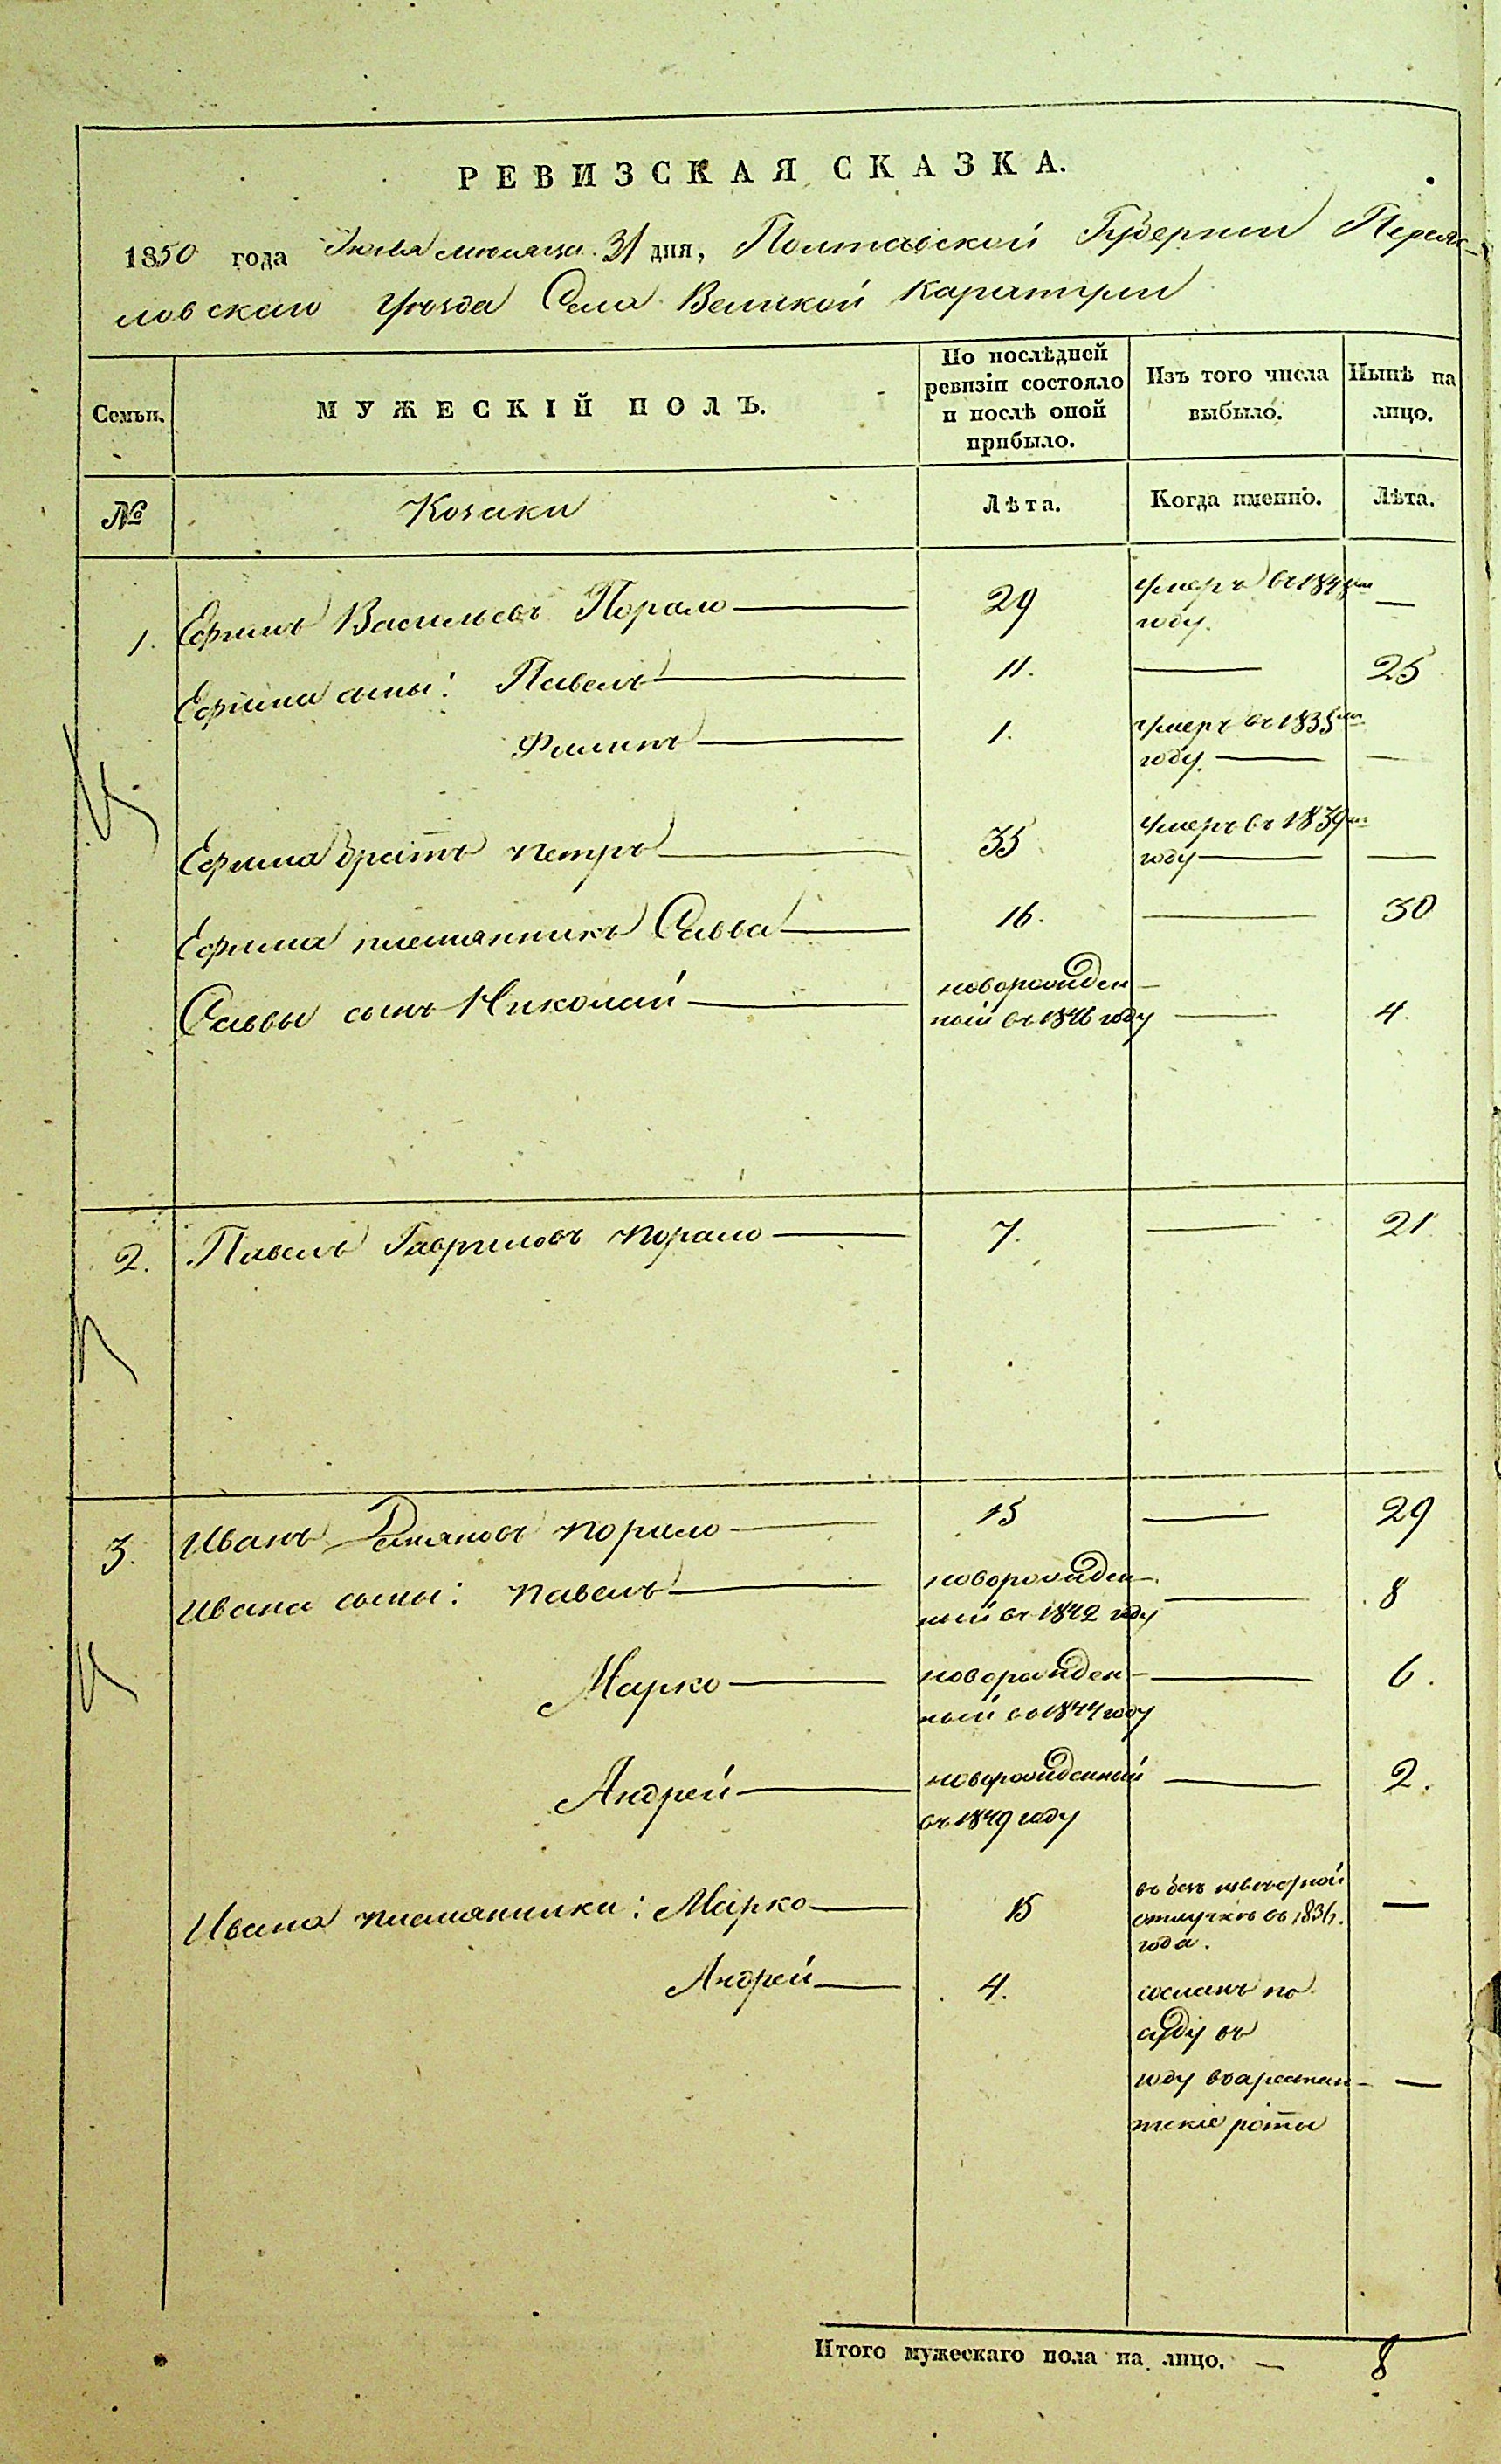 РЕВИЗСКАЯ СКАЗКА.
1850 года Июля месяца 31 дня, Полтавской Губернии Переяс-
ловскаго Уѣзда Села Великой Каратули
Семьи.
МУЖЕСКІЙ ПОЛЪ.
По послѣдней ревизіи состояло и послѣ оной прибыло.
Изъ того числа выбыло.
Нынѣ на лицо.
№
Козаки
Лѣта.
Когда именно.
Лѣта.
1. Ефимъ Васильевъ Порало 29 умеръ въ году. —
Ефима сыны: Павелъ 11. — 25
Филипъ 1. умеръ въ 1835мъ году. — —
Ефима братъ Петръ 35 умеръ въ 1839мъ году — —
Ефима племянникъ Савва 16. — 30
Саввы сынъ Николай новорожден-
ный въ 1846 году — 4.
2. Павелъ Гавриловъ Порало 7. — 21
3. Иванъ Демяновъ Порало 15 — 29
Ивана сыны: Павелъ новорожден-
ный въ 1842 году — 8
Марко новорожден-
ный въ 1844 году — 6.
Андрей новорожденный
въ 1849 году — 2.
Ивана племянники: Марко 15 въ безъ
отлучкѣ съ 1836.
года. —
Андрей 4. сосланъ по
суду въ
году въ арестан-
тскіе роты —
Итого мужескаго пола на лицо. — 8